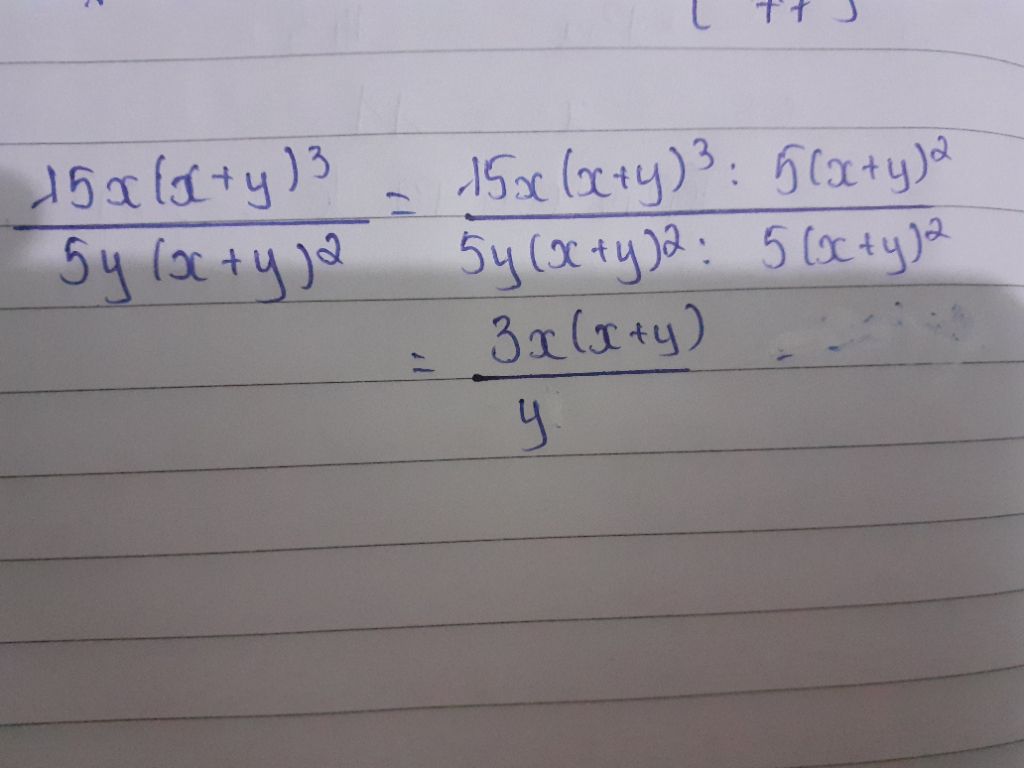 15x(x+y)³ / 5y(x+y)² = 15x(x+y)³ : 5(x+y)² / 5y(x+y)² : 5(x+y)²
= 3x(x+y) / y